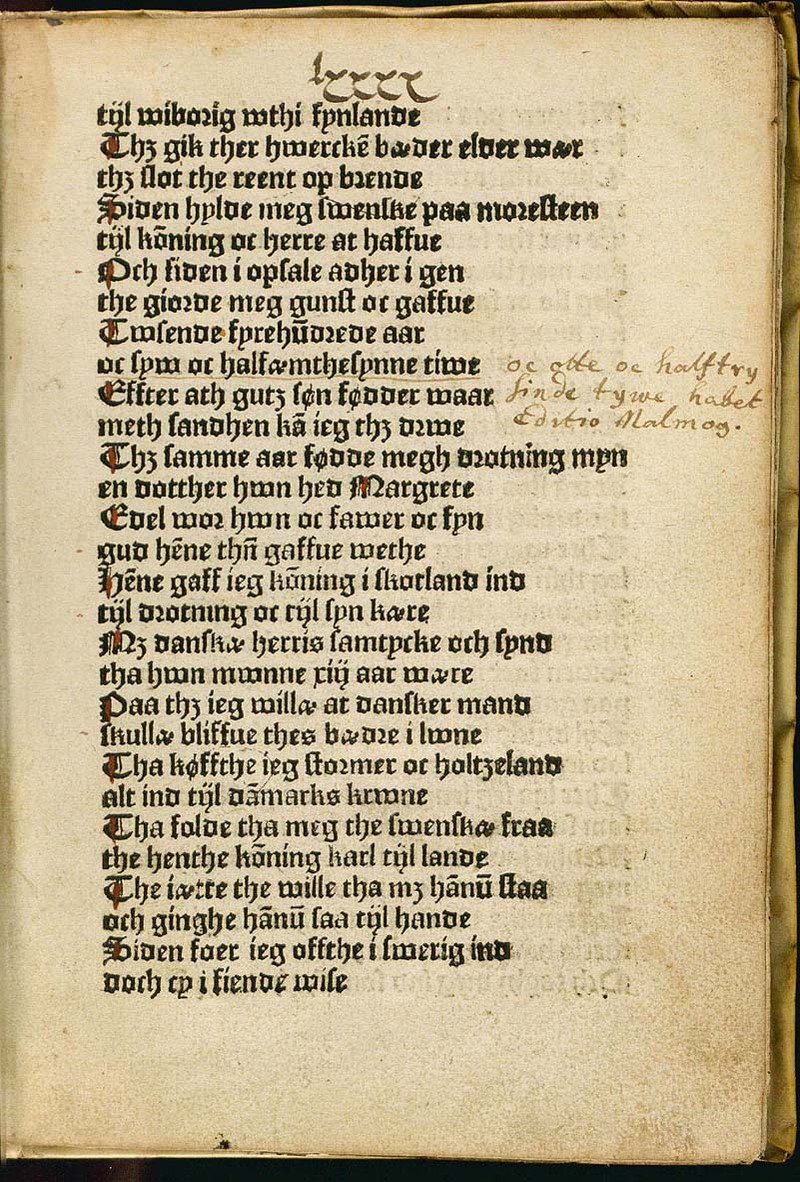 lxxxx
tijl wiborig wthi fynlande
Thꝫ gik ther hwerckē bæder elder wær
thꝫ slot the reent op brende
Siden hylde meg swenske paa moresteen
tijl kōning oc herre at haffue
Och siden i opsale adher i gen
the giorde meg gunst oc gaffue
Twsende fyrehūdrede aar
oc syw oc halfæmthesynne tiwe oc otte oc halftry
Effter ath gutz søn fødder waar sinde tywe habet
meth sandhen kā ieg thꝫ drwe Editio Malmog.
Thꝫ samme aar fødde megh drotning myn
en dotther hwn hed Margrete
Edel wor hwn oc fawer oc fyn
gud hēne thn̄ gaffue wethe
Hēne gaff ieg kōning i skotland ind
tijl drotning oc tijl syn kære
Mꝫ danskæ herris samtycke och synd
tha hwn mwnne xiij aar wære
Paa thꝫ ieg willæ at dansker mand
skullæ bliffue thes bædre i lwne
Tha køffthe ieg stormer oc holtzeland
alt ind tijl dāmarks krwne
Tha folde tha meg the swenskæ fraa
the henthe kōning karl tijl lande
The iætte the wille tha mꝫ hānū staa
och ginghe hānū saa tijl hande
Siden foer ieg offthe i swerig ind
doch ey i fiende wise